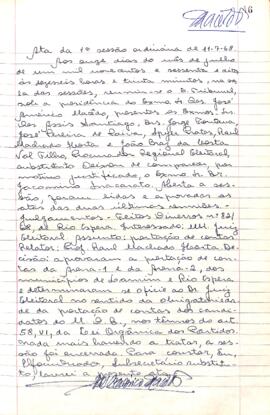 16
Ata da 1ª sessão ordinária de 11-7-68.
Aos onze dias do mês de julho
de um mil novecentos e sessenta e oito
às dezesseis horas e trinta minutos, na sala
das sessões, reuniu-se o E. Tribunal,
sob a presidência do Exmo. Sr. Des. José
Américo Macêdo, presentes os Exmos. Srs.
Des. Assis Santiago, Drs. Jorge Fontana,
José Pereira de Paiva, Raul
Machado Horta e João Braz da Costa
Val Filho, Procurador Regional Eleitoral,
substituto. Deixou de comparecer, por
motivo justificado, o Exmo. Sr. Dr.
Jacomino Inacarato. Aberta a ses-
são, foram lidas e aprovadas as
atas das duas últimas reuniões.
Julgamentos - Feitos Diversos nº
de Rio Espera. Interessado: MM. Juiz
Eleitoral. Assunto: prestação de contas.
Relator: Prof. Raul Machado Horta. De-
cisão: aprovaram a prestação de con-
tas da Arena-1 e da Arena-2, dos
municípios de Lamim e Rio Espera
e determinaram se oficie ao Dr. Juiz
Eleitoral no sentido da obrigatorieda-
de da prestação de contas dos candi-
datos do M.D.B., nos têrmos do art.
58, VI, da Lei Orgânica dos Partidos.
Nada mais havendo a tratar, a ses-
são foi encerrada. Para constar, Eu,
Subsecretário substitu-
to, lavrei a presente ata.